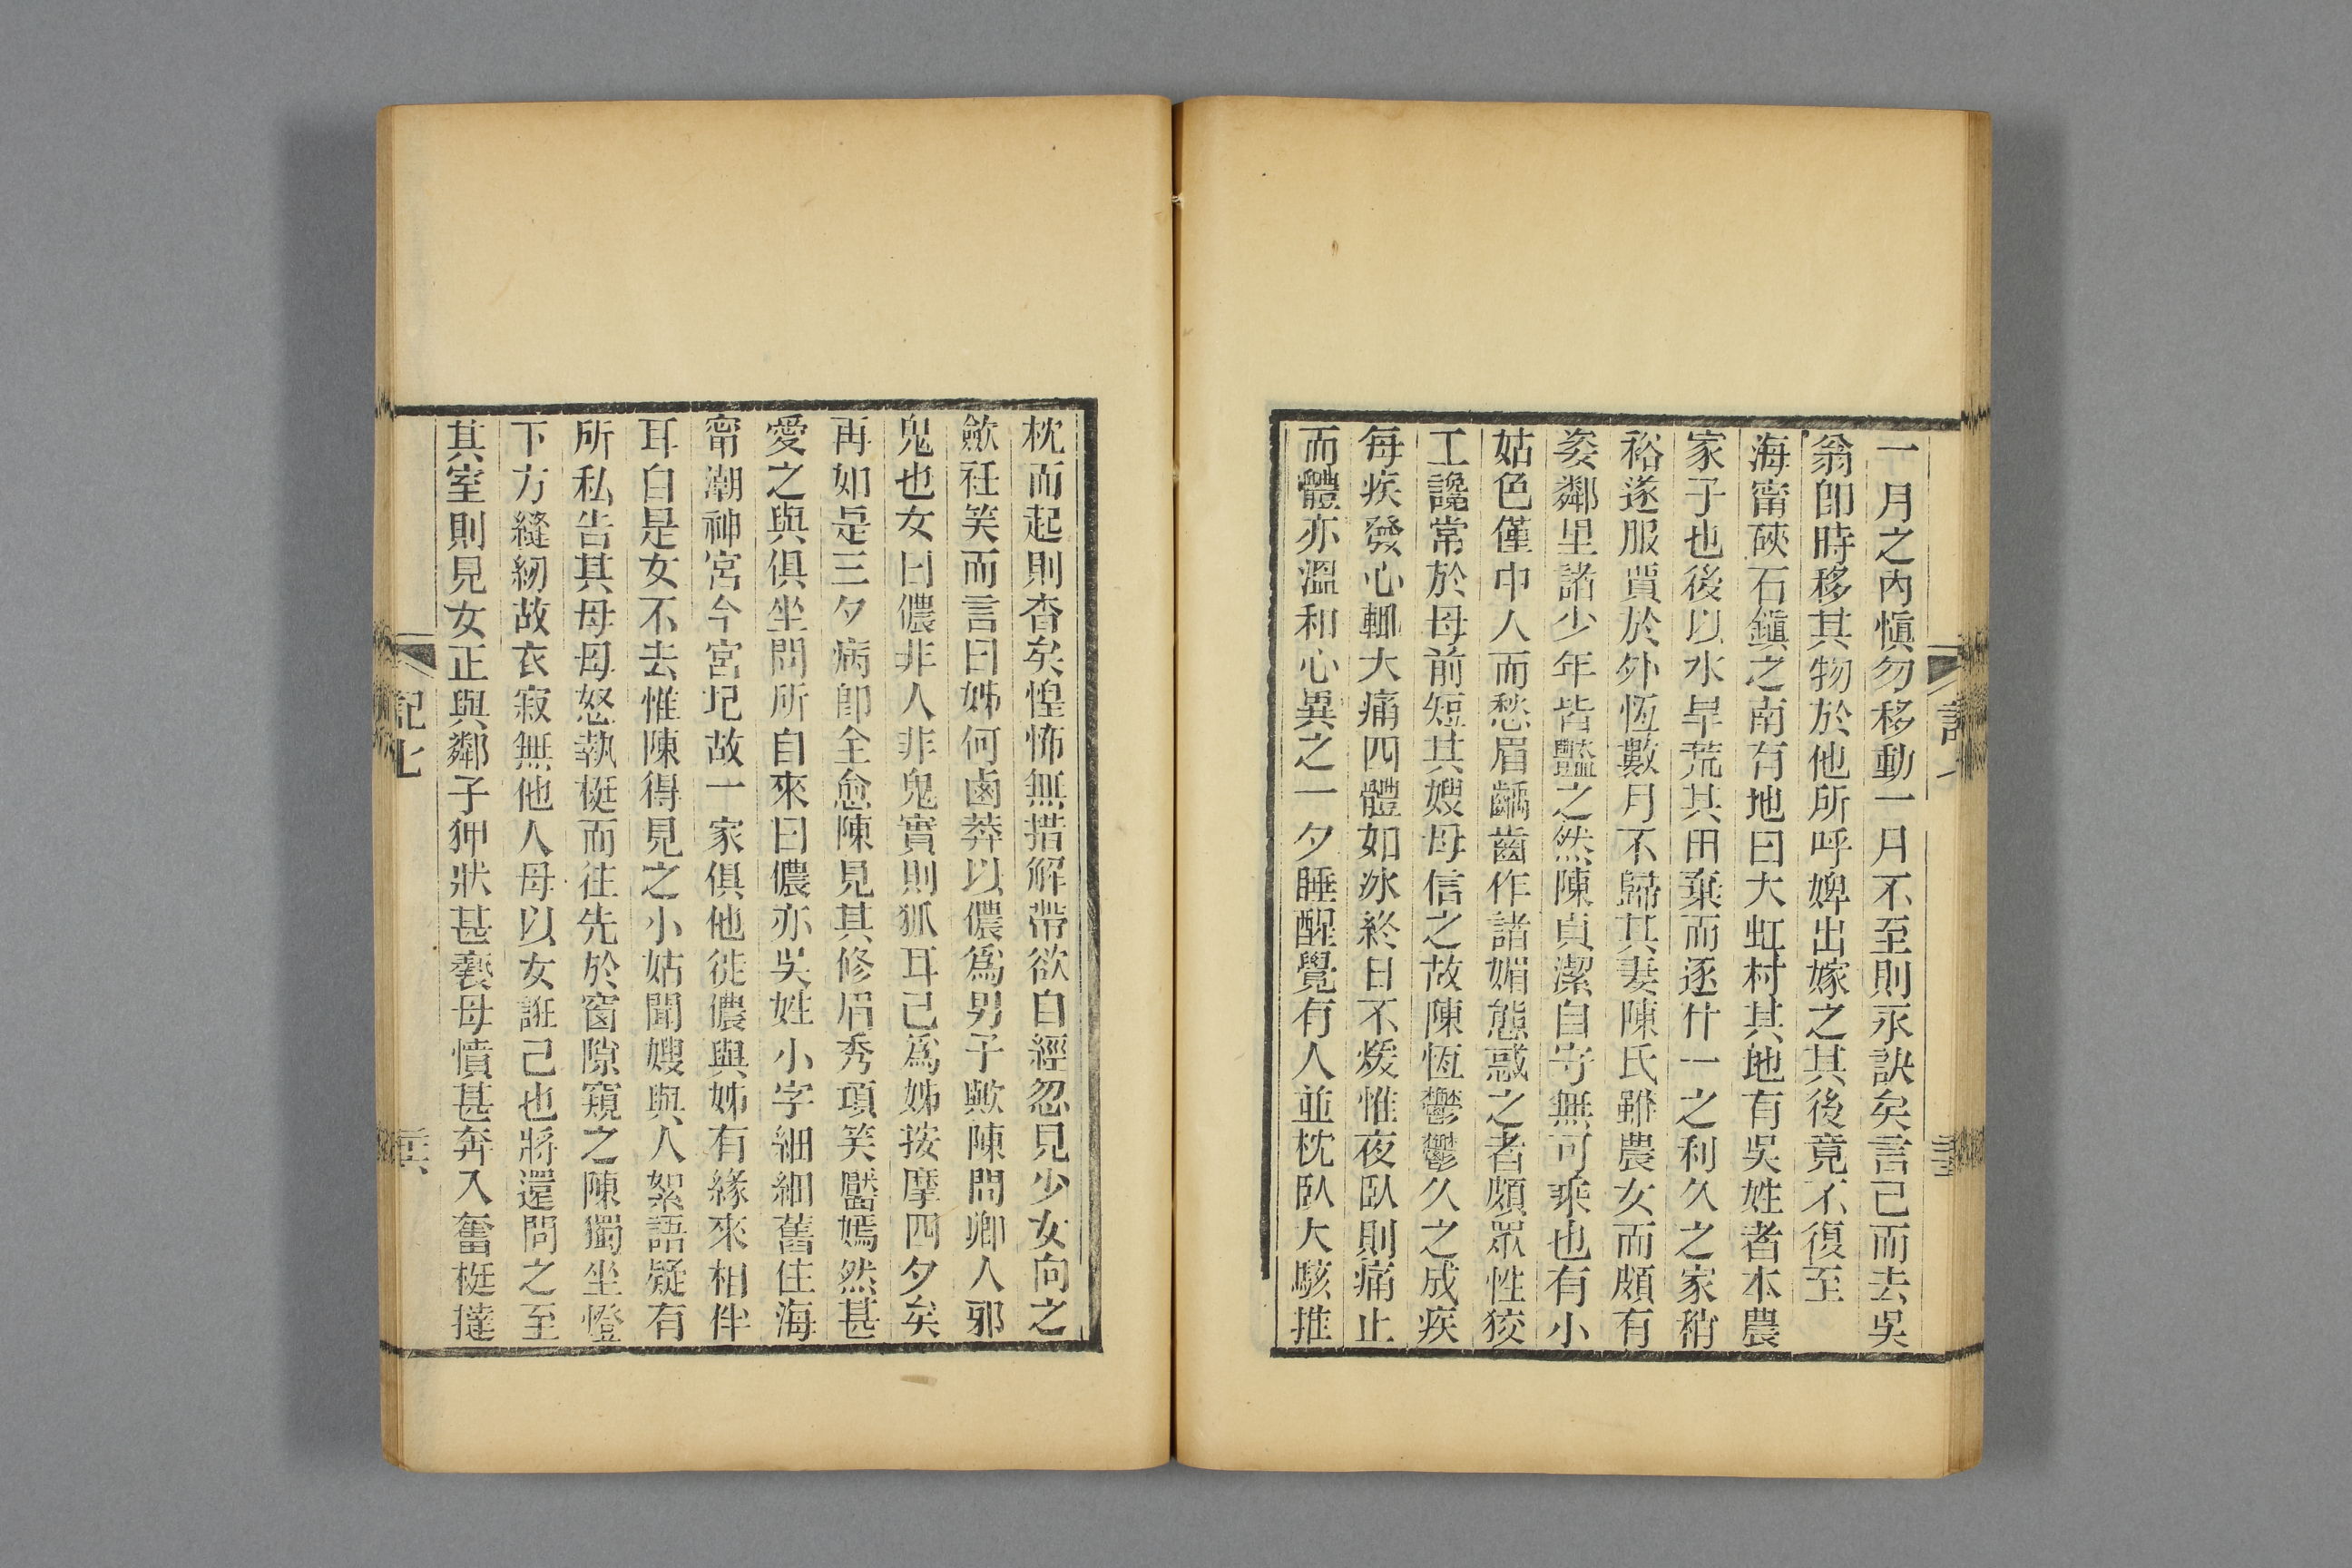 一月之內愼勿移動一月不至則永訣矣言已而去吳
翁卽時移其物於他所呼婢出嫁之其後竟不復至
海甯硤石鎭之南有地曰大虹村其地有吳姓者本農
家子也後以水旱荒其田棄而逐什一之利久之家稍
裕遂服賈於外恆數月不歸其妻陳氏雖農女而頗有
姿鄰里諸少年皆豔之然陳貞潔自守無可乘也有小
姑色僅中人而愁眉齲齒作諸媚態惑之者頗眾性狡
工讒常於母前短其嫂母信之故陳恆鬱鬱久之成疾
每疾發心輒大痛四體如冰終日不煖惟夜臥則痛止
而體亦溫和心異之一夕睡醒覺有人並枕臥大駭推
枕而起則杳矣惶怖無措解帶欲自經忽見少女向之
歛衽笑而言曰姊何鹵莽以儂爲男子歟陳問卿人邪
鬼也女曰儂非人非鬼實則狐耳已爲姊按摩四夕矣
再如是三夕病卽全愈陳見其修眉秀項笑靨嫣然甚
愛之與俱坐問所自來曰儂亦吳姓小字細細舊住海
甯潮神宮今宮圮故一家俱他徙儂與姊有緣來相伴
耳自是女不去惟陳得見之小姑聞嫂與人絮語疑有
所私告其母母怒執梃而往先於窗隙窺之陳獨坐燈
下方縫紉故衣寂無他人母以女誑己也將還問之至
其室則見女正與鄰子狎狀甚褻母憤甚奔入奮梃撻
記七